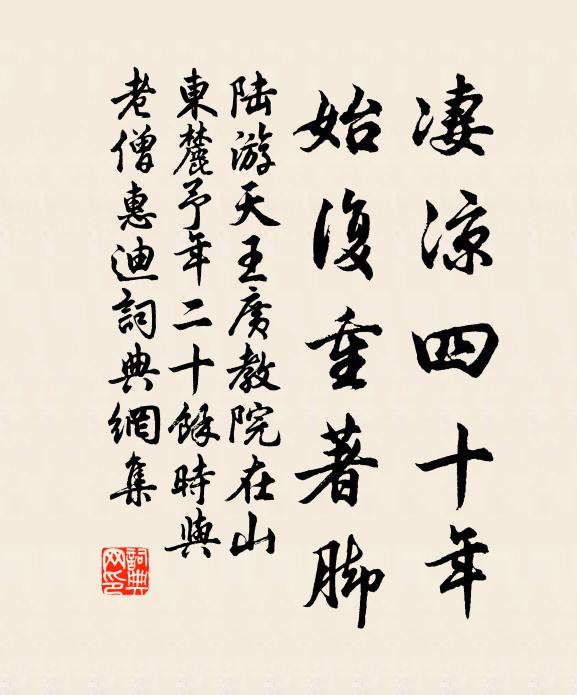 凄涼四十年
始復重著脚
陆游天王廣教院在山
東麓予年二十餘時與
老僧惠迪詞典網集
詞典
网印